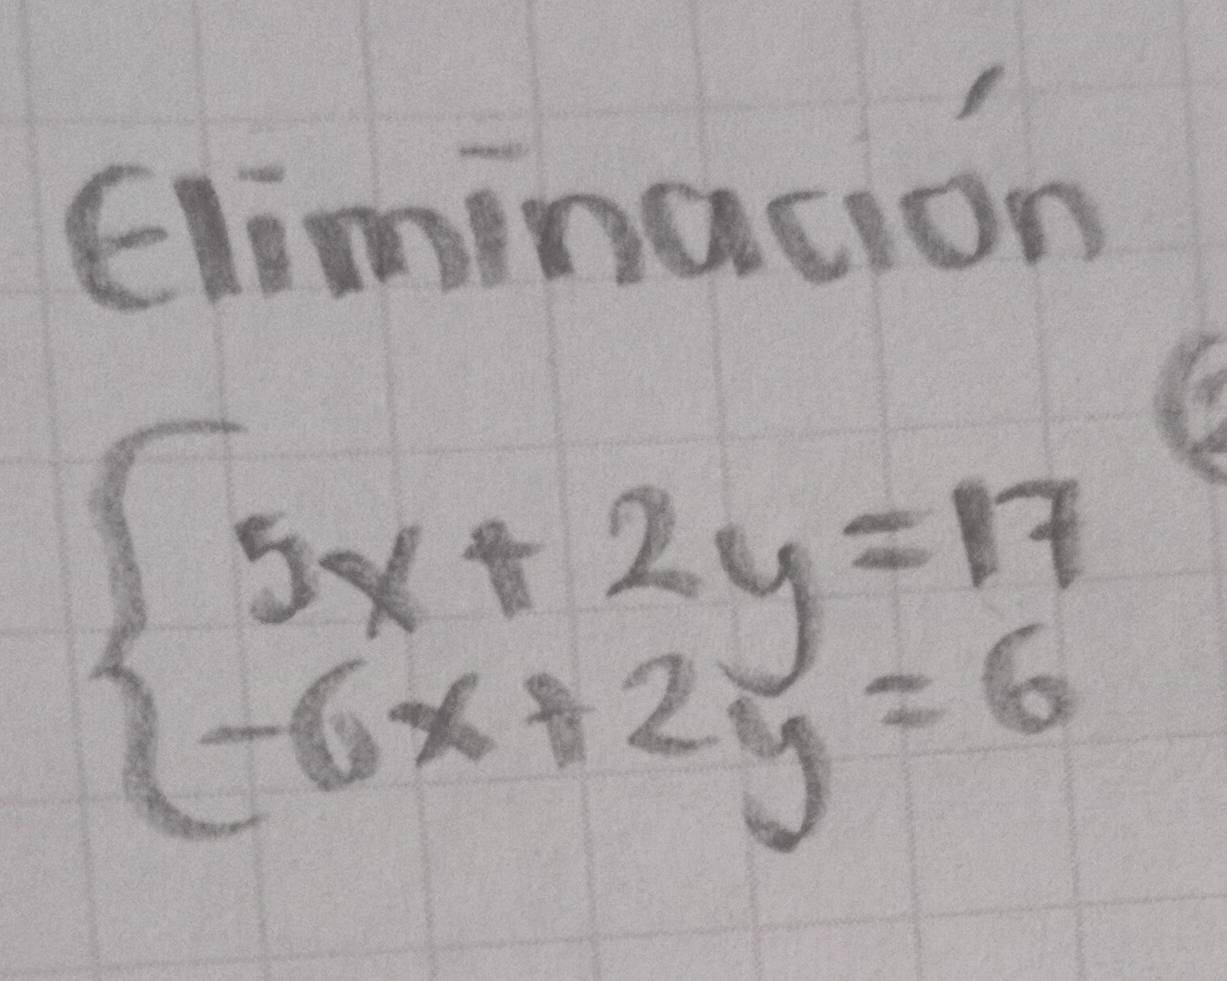 Eliminación
5x + 2y = 17
-6x + 2y = 6